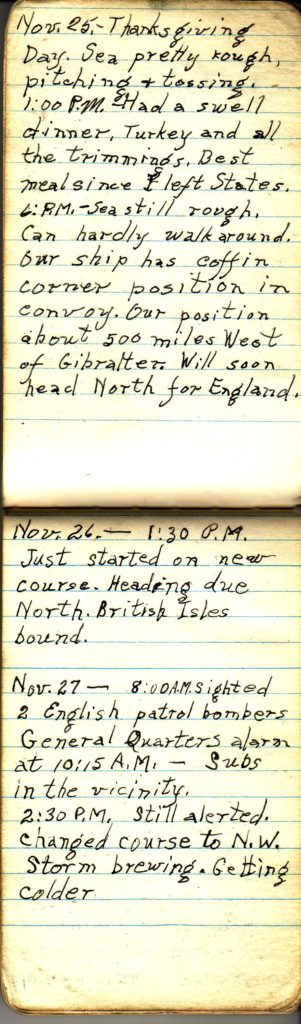 Nov. 25,- Thanksgiving
Day. Sea pretty rough,
pitching + tossing.
1:00 P.M. - Had a swell
dinner, Turkey and all
the trimmings. Best
meal since I left States.
6: P.M. - Sea still rough.
Can hardly walk around.
Our ship has coffin
corner position in
convoy. Our position
about 500 miles West
of Gibralter. Will soon
head North for England.
Nov. 26. — 1:30 P.M.
Just started on new
course. Heading due
North. British Isles
bound.
Nov. 27 — 8:00 A.M. sighted
2 English patrol bombers
General Quarters alarm
at 10:15 A.M. — Subs
in the vicinity.
2:30 P.M. Still alerted.
Changed course to N.W.
Storm brewing. Getting
colder